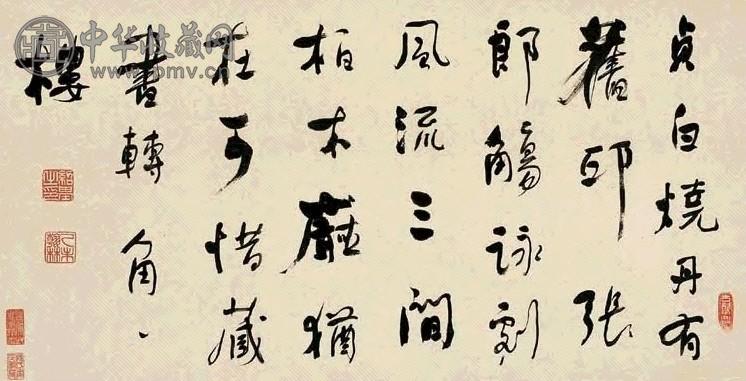 貞白燒丹有
舊邱張
郎觴詠劇
風流三間
柏木廳猶
在可惜藏
書轉角
樓
中华收藏网
www.pmv.cn